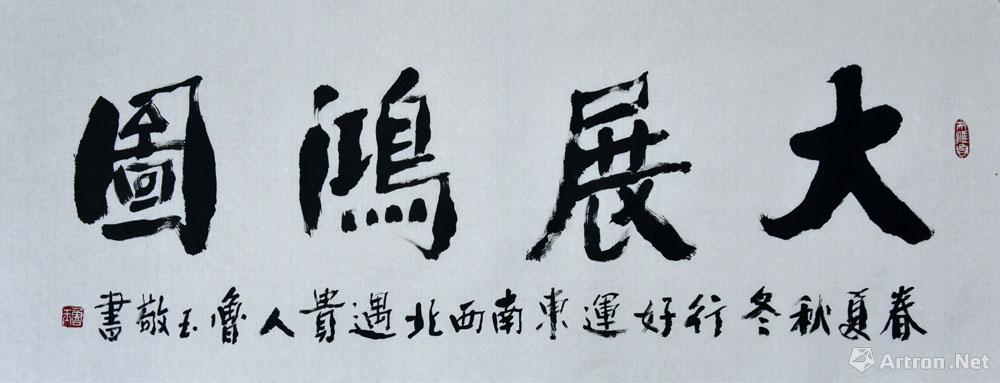 大展鴻圖
春夏秋冬行好運東南西北遇貴人魯玉敬書
Artron.Net